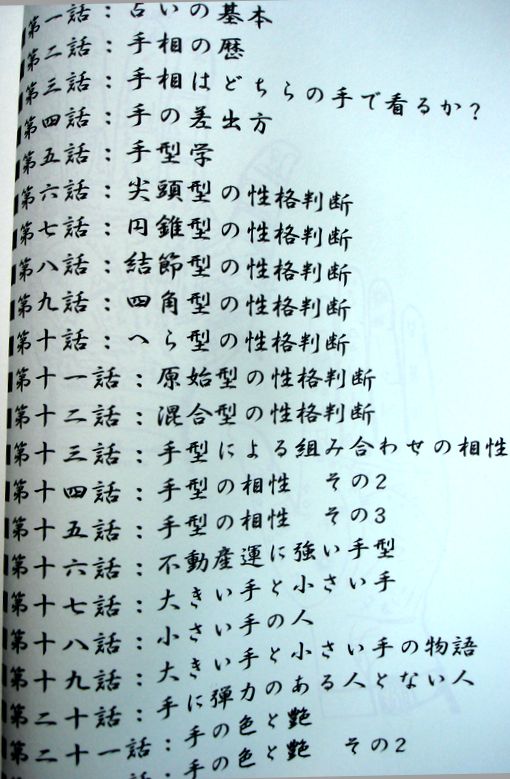 第一話：占いの基本
第二話：手相の歴
第三話：手相はどちらの手で看るか？
第四話：手の差出方
第五話：手型学
第六話：尖頭型の性格判断
第七話：円錐型の性格判断
第八話：結節型の性格判断
第九話：四角型の性格判断
第十話：へら型の性格判断
第十一話：原始型の性格判断
第十二話：混合型の性格判断
第十三話：手型による組み合わせの相性
第十四話：手型の相性　その2
第十五話：手型の相性　その3
第十六話：不動産運に強い手型
第十七話：大きい手と小さい手
第十八話：小さい手の人
第十九話：大きい手と小さい手の物語
第二十話：手に弾力のある人とない人
第二十一話：手の色と艶
話：手の色と艶　その2